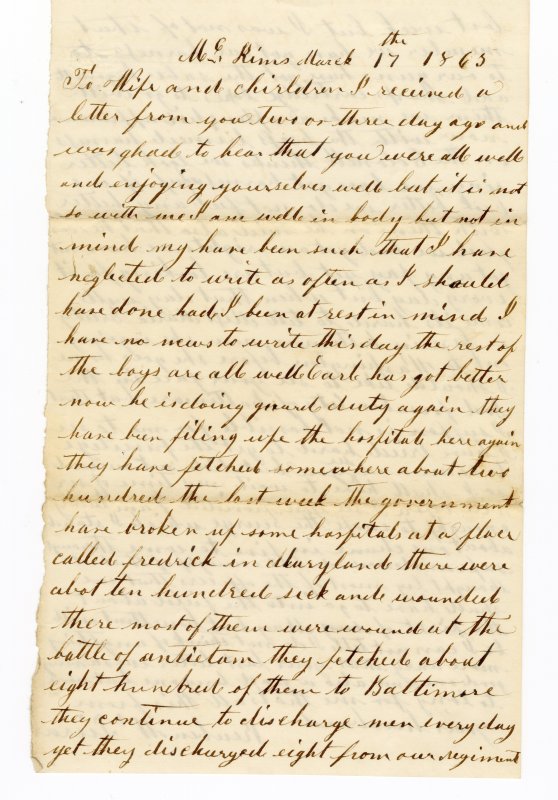 Mc Kims March 17th 1863
To Wife and chirldren I received a
letter from you two or three day ago and
was ghad to hear that you were all well
and enjoying yourselves well but it is not
so with me I am well in body but not in
mind my have been such that I have
neglcted to write as often as I should
have done had I been at rest in mind I
have no news to write this day the rest of
the boys are all well Earl has got better
now he is doing guard duty again they
have ben filing upe the hospitals here again
they have fetched somewhere about two
hundred the last week the government
have broken up some hospitals at a place
called fredrick in Maryland there were
abot ten hundred sick and wounded
there most of them were wound at the
battle of antietam they fetched about
eight hundred of them to Baltimore
they continue to discharge men every day
yet they discharged eight from our regiment